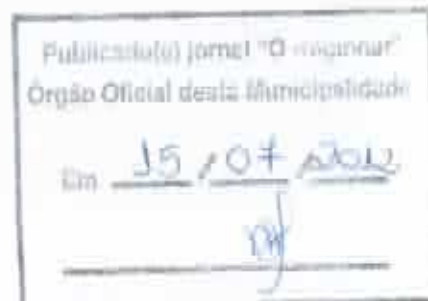 Publicado(o) jornal "O
Órgão Oficial desta Municipalidade
Em 15 / 07 / 2012